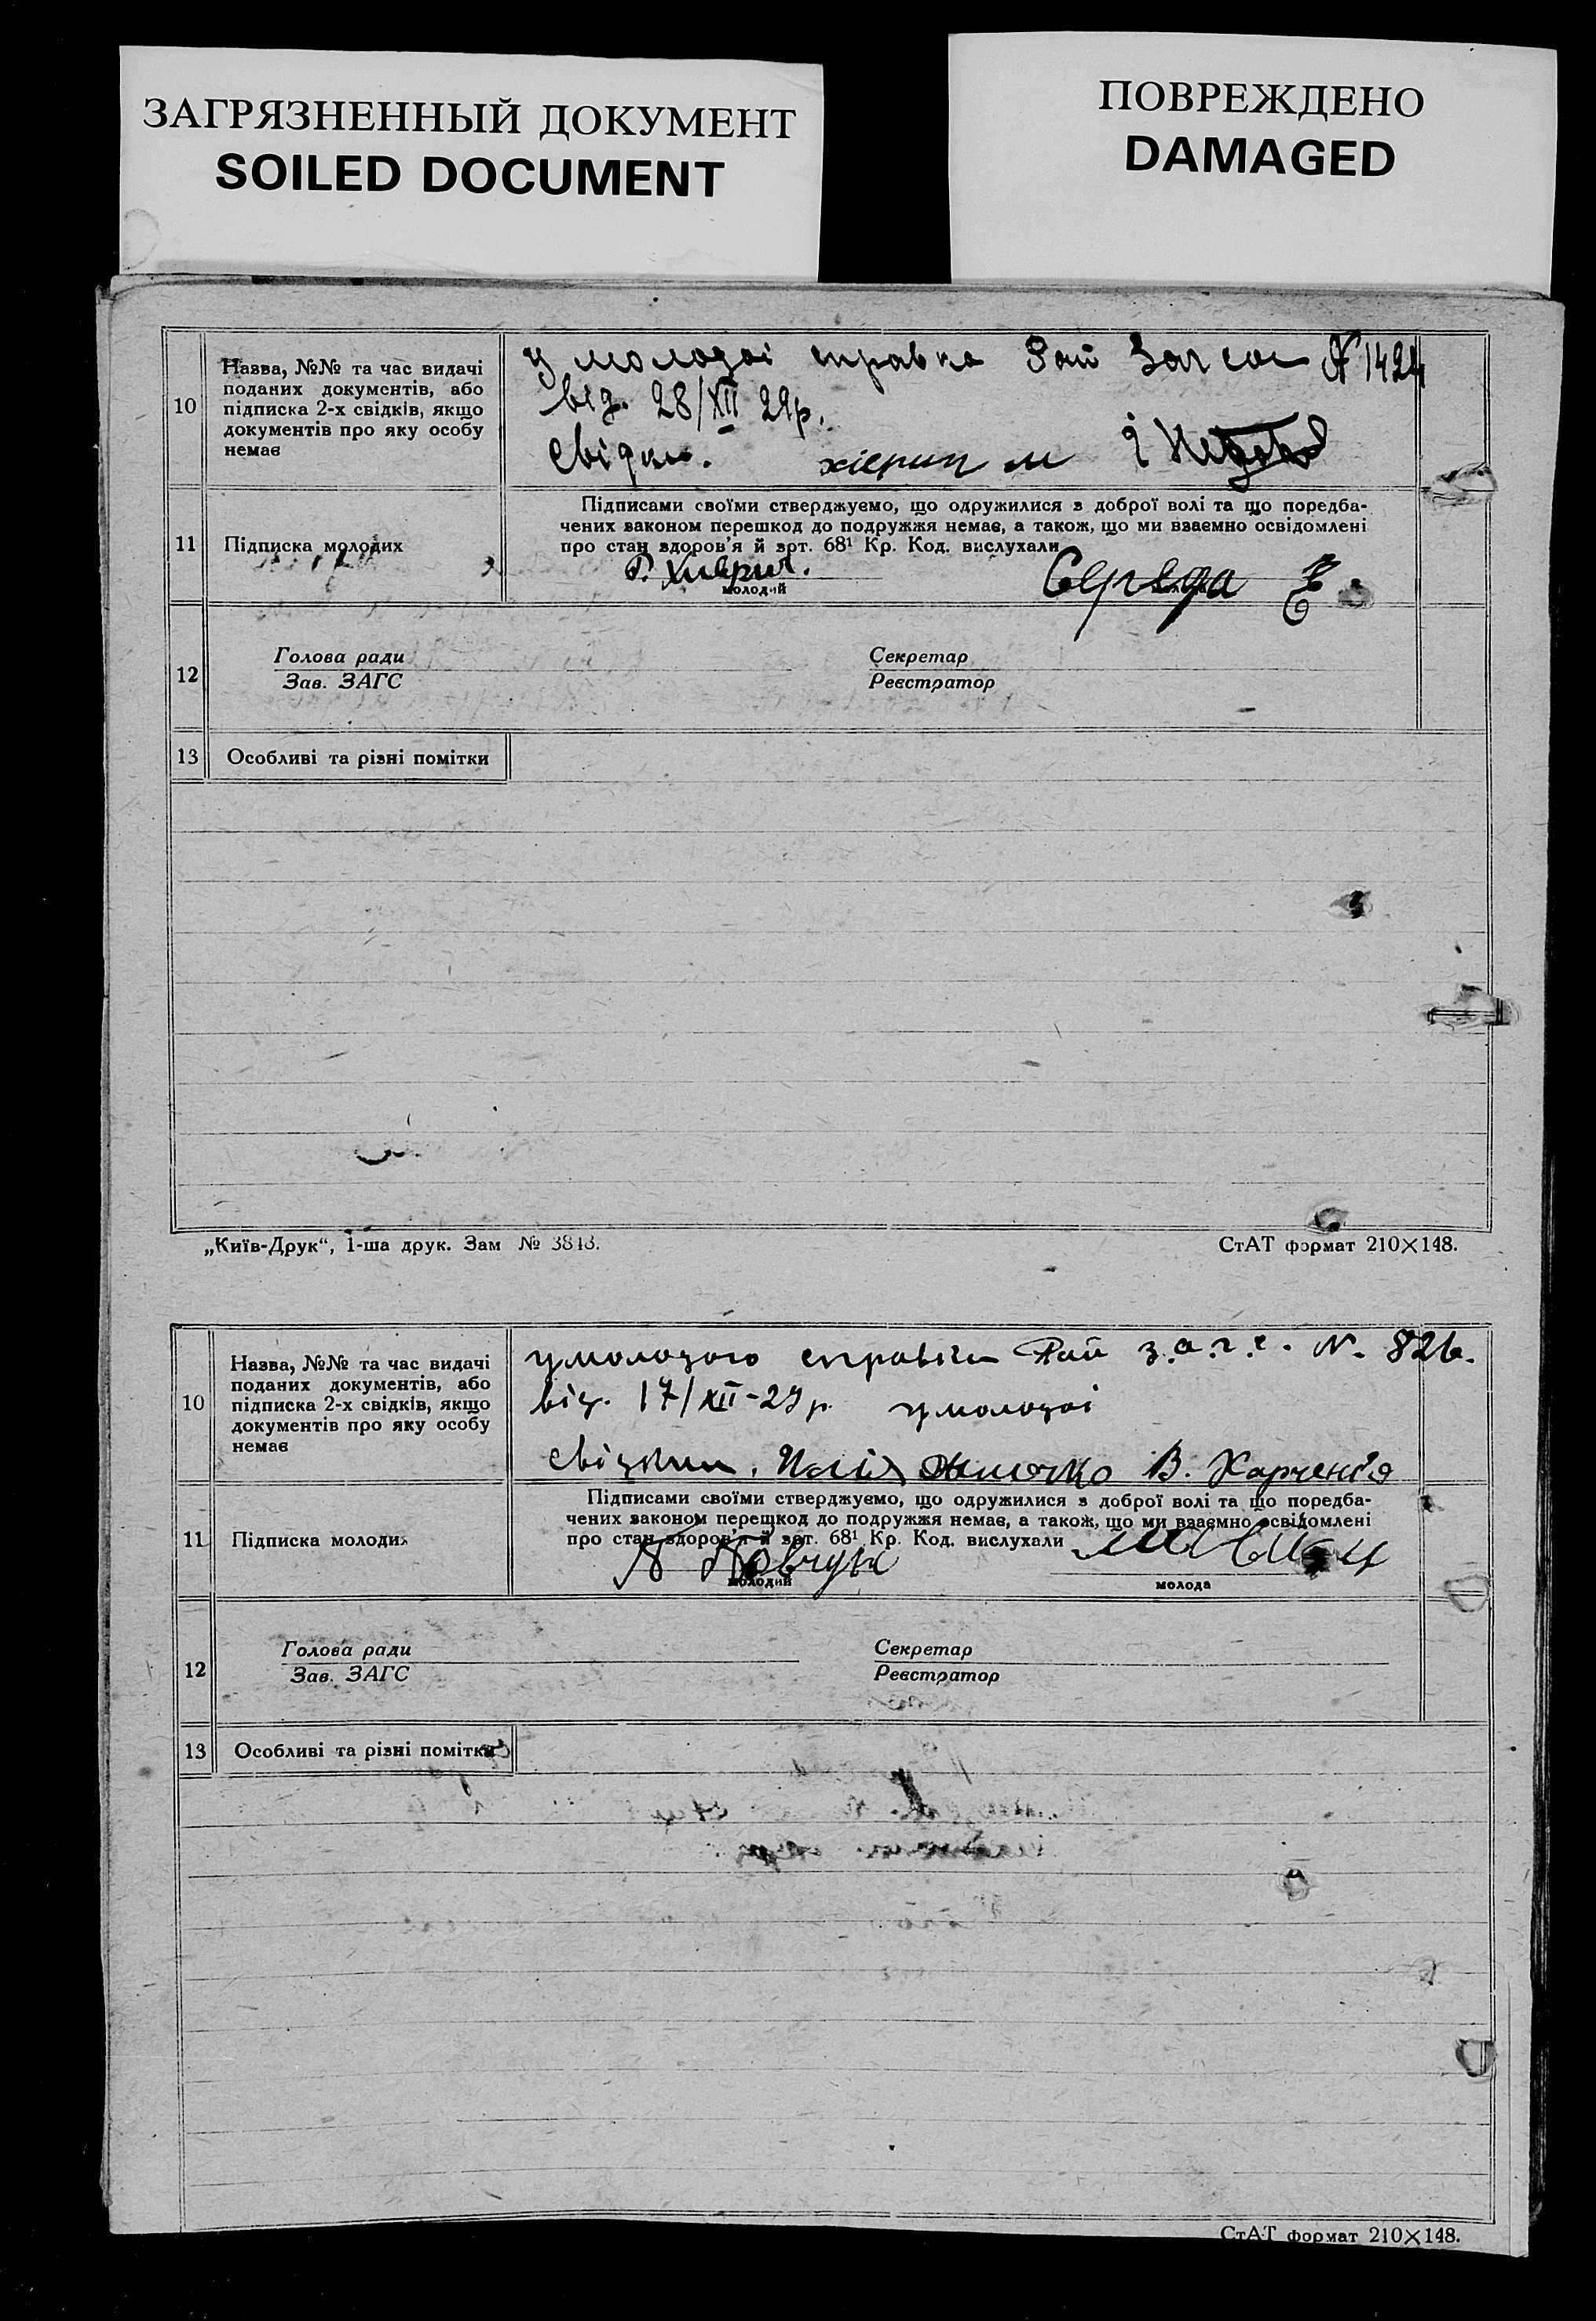 ЗАГРЯЗНЕННЫЙ ДОКУМЕНТ
SOILED DOCUMENT
ПОВРЕЖДЕНО
DAMAGED
10
Назва, №№ та час видачі
поданих документів, або
підписка 2-х свідків, якщо
документів про яку особу
немає
у молодої справка Рай Загса № 1424
від. 28/XII 29р.
Свідки.
11
Підписка молодих
Підписами своїми стверджуємо, що одружилися з доброї волі та що поредба-
чених законом перешкод до подружжя немає, а також, що ми взаємно освідомлені
про стан здоров'я й арт. 68¹ Кр. Код. вислухали
молодий
Середа Е
12
Голова ради
Зав. ЗАГС
Секретар
Реєстратор
13
Особливі та різні помітки
„Київ-Друк“, 1-ша друк. Зам № 3848.
СтАТ формат 210×148.
10
Назва, №№ та час видачі
поданих документів, або
підписка 2-х свідків, якщо
документів про яку особу
немає
у молодого справка Рай з.а.г.с. N. 826.
від. 17/XII-29р. у молодої
свідки. В. Харченко
11
Підписка молодих
Підписами своїми стверджуємо, що одружилися з доброї волі та що поредба-
чених законом перешкод до подружжя немає, а також, що ми взаємно освідомлені
про стан здоров'я й арт. 68¹ Кр. Код. вислухали
молодий
молода
12
Голова ради
Зав. ЗАГС
Секретар
Реєстратор
13
Особливі та різні помітки
СтАТ формат 210×148.